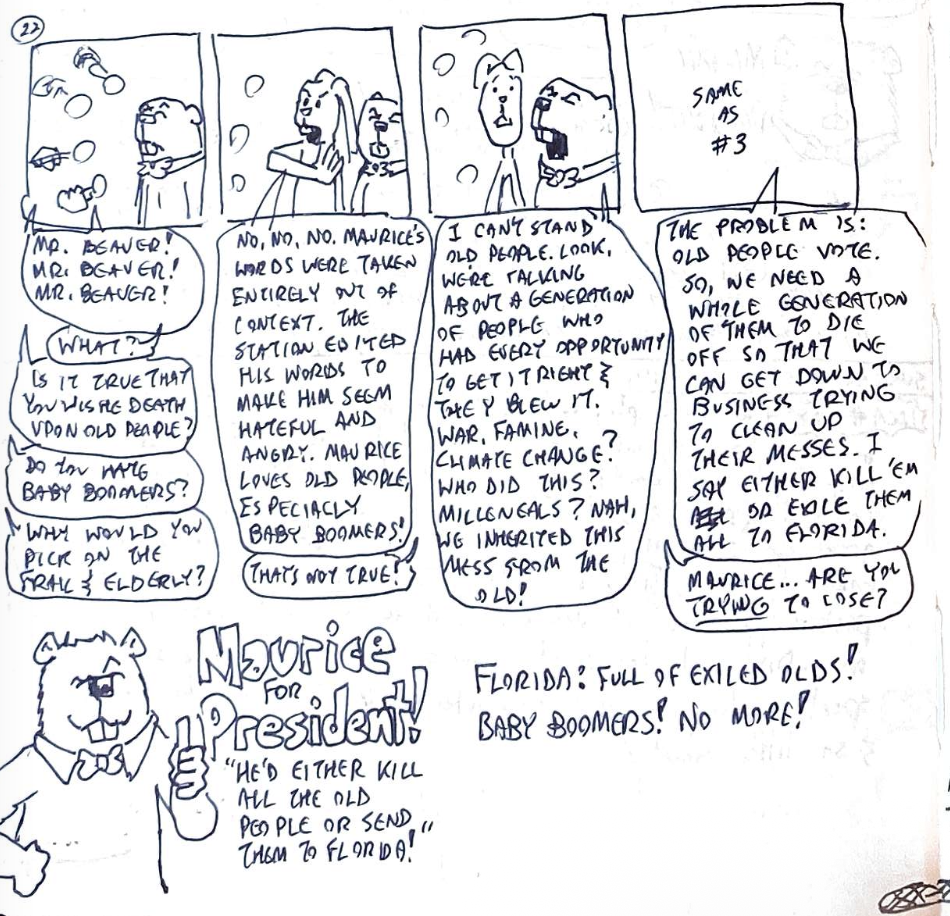 22
MR. BEAVER!
MR. BEAVER!
MR. BEAVER!
WHAT?
IS IT TRUE THAT
YOU WISHE DEATH
UPON OLD PEOPLE?
DO YOU HATE
BABY BOOMERS?
WHY WOULD YOU
PICK ON THE
FRAIL & ELDERLY?
NO, NO, NO. MAURICE'S
WORDS WERE TAKEN
ENTIRELY OUT OF
CONTEXT. THE
STATION EDITED
HIS WORDS TO
MAKE HIM SEEM
HATEFUL AND
ANGRY. MAURICE
LOVES OLD PEOPLE,
ESPECIACLY
BABY BOOMERS!
THAT'S NOT TRUE!
I CAN'T STAND
OLD PEOPLE. LOOK,
WE'RE TALKING
ABOUT A GENERATION
OF PEOPLE WHO
HAD EVERY OPPORTUNITY
TO GET IT RIGHT &
THEY BLEW IT.
WAR, FAMINE,
CLIMATE CHANGE?
WHO DID THIS?
MILLENEALS? NAH,
WE INHERITED THIS
MESS FROM THE
OLD!
SAME
AS
#3
THE PROBLEM IS:
OLD PEOPLE VOTE.
SO, WE NEED A
WHOLE GENERATION
OF THEM TO DIE
OFF SO THAT WE
CAN GET DOWN TO
BUSINESS TRYING
TO CLEAN UP
THEIR MESSES. I
SAY EITHER KILL 'EM
OR EXILE THEM
ALL TO FLORIDA.
MAURICE... ARE YOU
TRYING TO LOSE?
Maurice
FOR
President!
"HE'D EITHER KILL
ALL THE OLD
PEOPLE OR SEND
THEM TO FLORIDA!"
FLORIDA: FULL OF EXILED OLDS!
BABY BOOMERS! NO MORE!